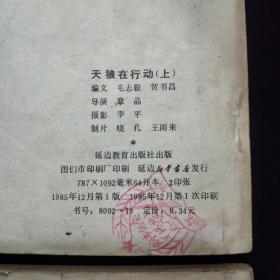 天狼在行动(上)
编文 毛志毅 贺书昌
导演 章晶
摄影 李平
制片 晓孔 王雨来
*
延边教育出版社出版
图们市印刷厂印刷 延边新华书店发行
787×1092毫米64开本 2印张
1985年12月第1版 1985年12月第1次印刷
书号:8092·19 定价:0.34元